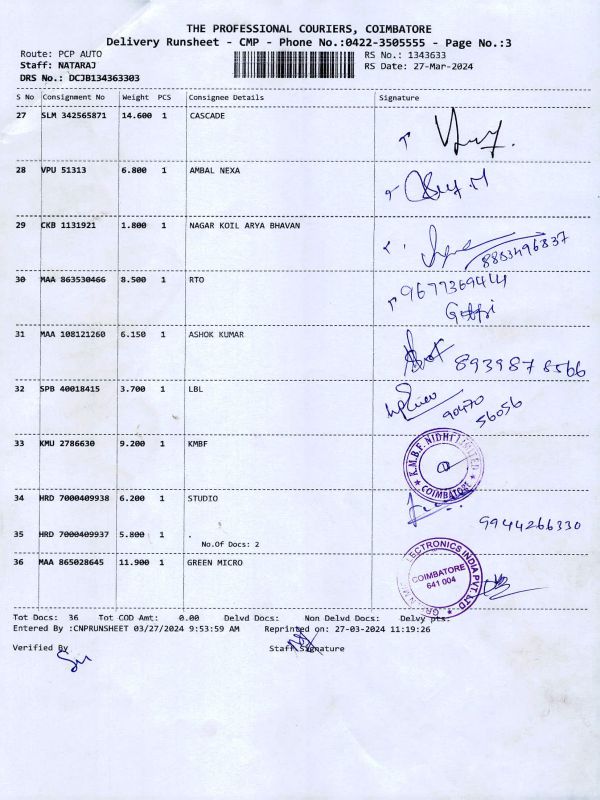 THE PROFESSIONAL COURIERS, COIMBATORE
Delivery Runsheet - CMP - Phone No.:0422-3505555 - Page No.:3
Route: PCP AUTO
RS No.: 1343633
Staff: NATARAJ
RS Date: 27-Mar-2024
DRS No.: DCJB134363303
S No Consignment No Weight PCS Consignee Details Signature
27 SLM 342565871 14.600 1 CASCADE
28 VPU 51313 6.800 1 AMBAL NEXA
29 CKB 1131921 1.800 1 NAGAR KOIL ARYA BHAVAN
8883496837
30 MAA 863530466 8.500 1 RTO
9677369414
31 MAA 108121260 6.150 1 ASHOK KUMAR
8939878566
32 SPB 40018415 3.700 1 LBL
90470
56056
33 KMU 2786630 9.200 1 KMBF
K.M.B.F. NIDHI LIMITED
COIMBATORE
34 HRD 7000409938 6.200 1 STUDIO
9944266330
35 HRD 7000409937 5.800 1 .
No.Of Docs: 2
36 MAA 865028645 11.900 1 GREEN MICRO
ELECTRONICS INDIA PVT. LTD
COIMBATORE
641 004
Tot Docs: 36 Tot COD Amt: 0.00 Delvd Docs: Non Delvd Docs: Delvy pts:
Entered By :CNPRUNSHEET 03/27/2024 9:53:59 AM Reprinted on: 27-03-2024 11:19:26
Verified By Staff Signature